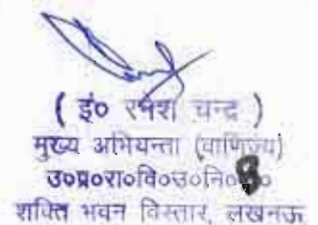 ( इं० रमेश चन्द्र )
मुख्य अभियन्ता (वाणिज्य)
उ०प्र०रा०वि०उ०नि०
शक्ति भवन विस्तार, लखनऊ